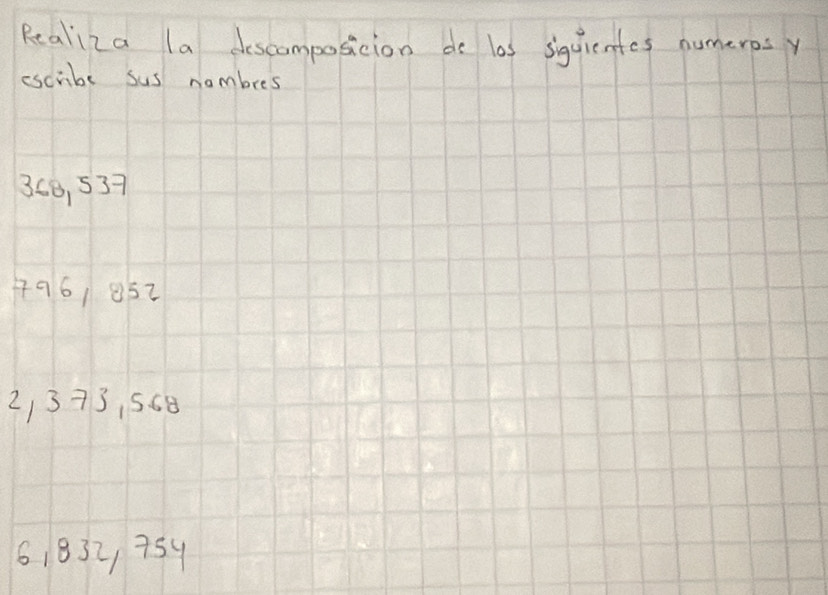 Realiza la descomposicion de los siguientes numeros y
escribe sus nombres
368,537
796,852
2,373,568
6,832,754